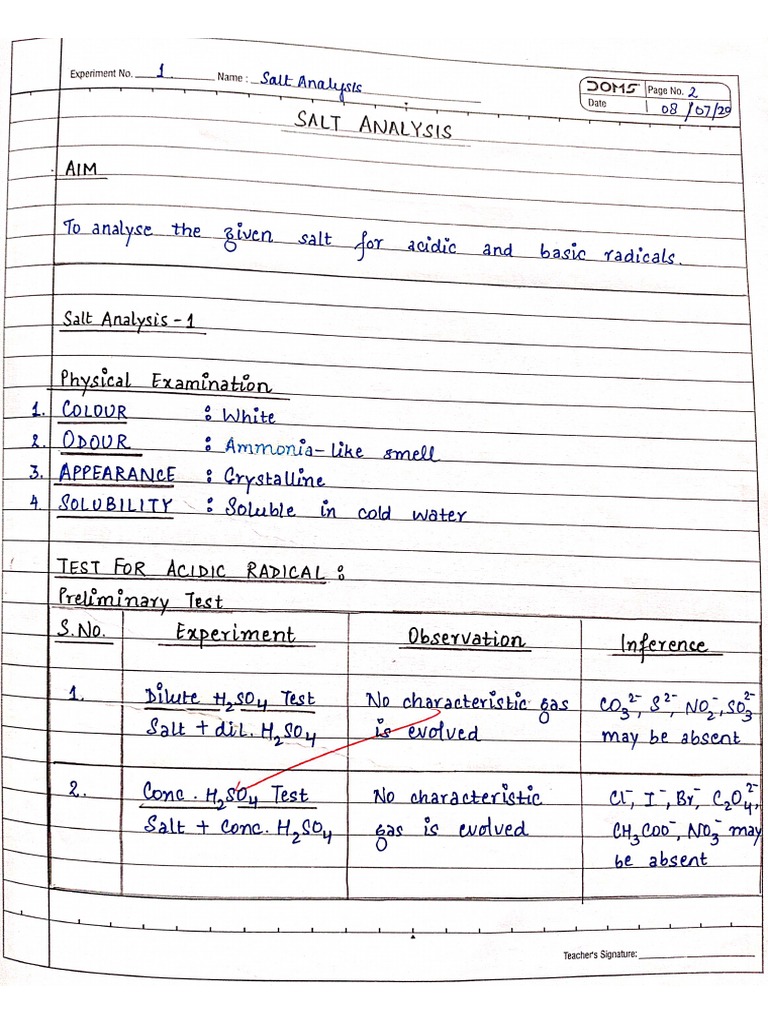 Experiment No. 1 Name : Salt Analysis
DOMS Page No. 2
Date 08/07/29
SALT ANALYSIS
AIM
To analyse the given salt for acidic and basic radicals.
Salt Analysis - 1
Physical Examination
1. COLOUR : White
2. ODOUR : Ammonia-like smell
3. APPEARANCE : Crystalline
4. SOLUBILITY : Soluble in cold water
TEST FOR ACIDIC RADICAL :
Preliminary Test
S.No. Experiment Observation Inference
1. Dilute H₂SO₄ Test No characteristic gas CO₃²⁻, S²⁻, NO₂⁻, SO₃²⁻
Salt + dil. H₂SO₄ is evolved may be absent
2. Conc. H₂SO₄ Test No characteristic Cl⁻, I⁻, Br⁻, C₂O₄²⁻,
Salt + Conc. H₂SO₄ gas is evolved CH₃COO⁻, NO₃⁻ may
be absent
Teacher's Signature: